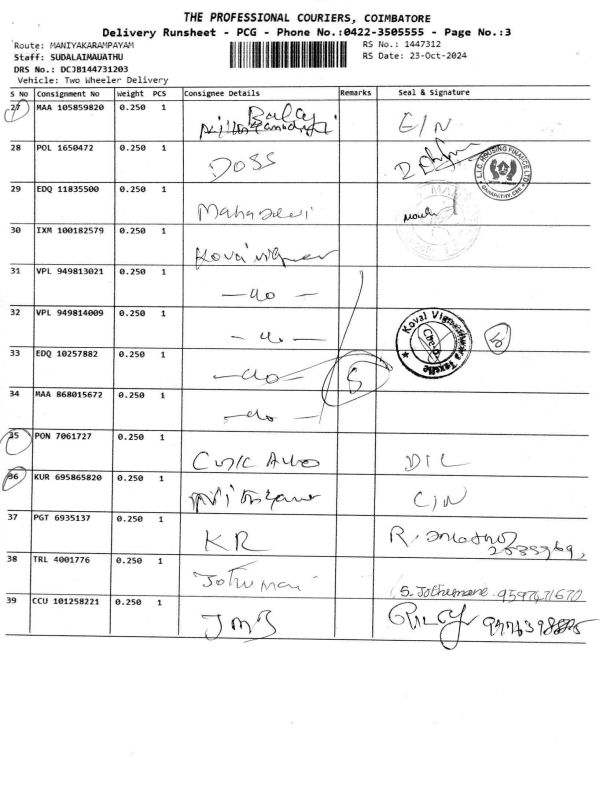 THE PROFESSIONAL COURIERS, COIMBATORE
Delivery Runsheet - PCG - Phone No.:0422-3505555 - Page No.:3
Route: MANIYAKARAMPAYAM
RS No.: 1447312
Staff: SUDALAIMAUATHU
RS Date: 23-Oct-2024
DRS No.: DCJB144731203
Vehicle: Two Wheeler Delivery
S No Consignment No Weight PCS Consignee Details Remarks Seal & Signature
27 MAA 105859820 0.250 1
28 POL 1650472 0.250 1 DOSS
L.I.C. HOUSING FINANCE LTD
29 EDQ 11835500 0.250 1 Mahadevi
30 IXM 100182579 0.250 1
31 VPL 949813021 0.250 1 - do -
32 VPL 949814009 0.250 1 - do -
5
33 EDQ 10257882 0.250 1 - do - 5
34 MAA 868015672 0.250 1 - do -
35 PON 7061727 0.250 1
36 KUR 695865820 0.250 1
37 PGT 6935137 0.250 1 KR
38 TRL 4001776 0.250 1 Jothimani S. Jothimani. 9597671670
39 CCU 101258221 0.250 1 JMB